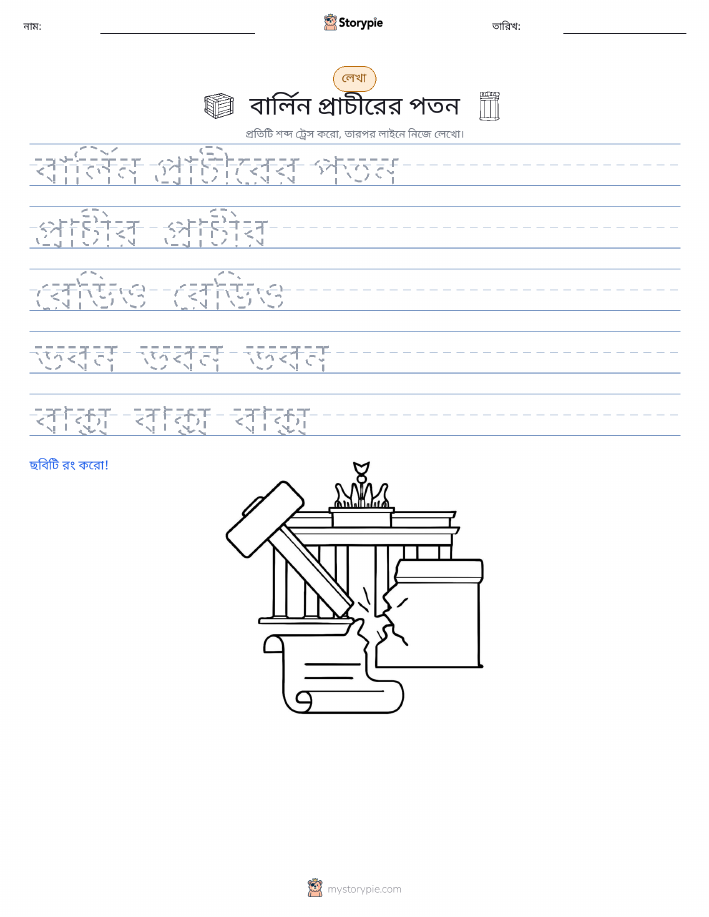 নাম:
Storypie
তারিখ:
লেখা
বার্লিন প্রাচীরের পতন
প্রতিটি শব্দ ট্রেস করো, তারপর লাইনে নিজে লেখো।
বার্লিন প্রাচীরের পতন
প্রাচীর প্রাচীর
রেডিও রেডিও
ভবন ভবন ভবন
বাক্স বাক্স বাক্স
ছবিটি রং করো!
mystorypie.com